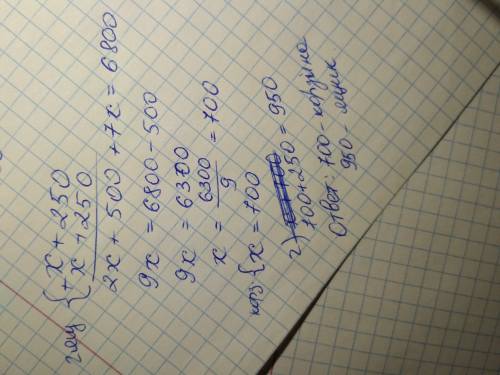 2 ящ { + x + 250
x + 250
2x + 500 + 7x = 6800
9x = 6800 - 500
9x = 6300
x = 6300/9 = 700
корз { x = 700
2) 700 + 250 = 950
Ответ: 700 - корзина
950 - ящик